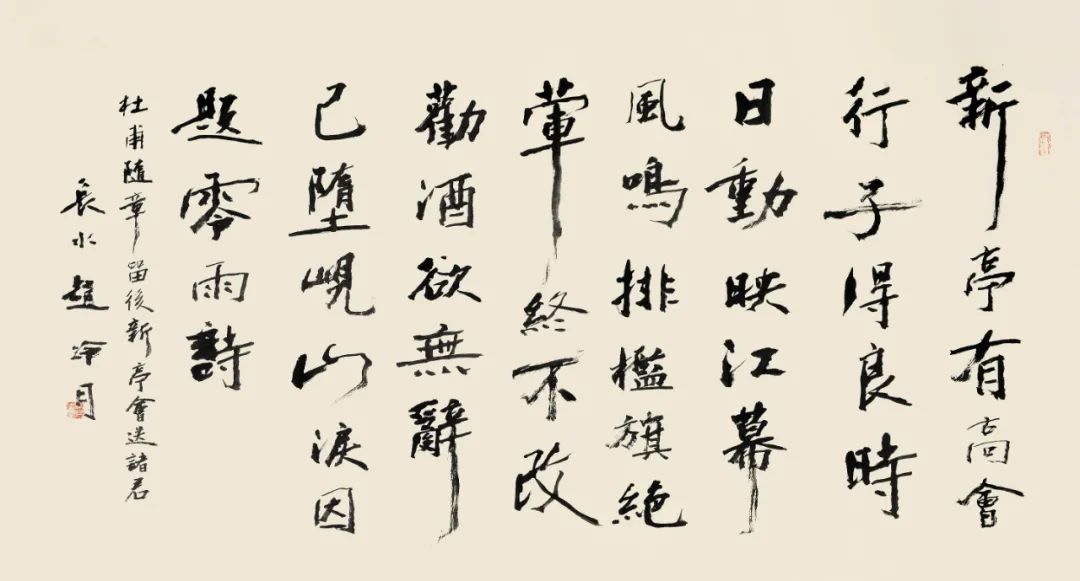 新亭有高會
行子得良時
日動映江幕
風鳴排檻旗絕
葷終不改
勸酒欲無辭
已墮峴山淚因
題零雨詩
杜甫隨章留後新亭會送諸君
長水趙冷月